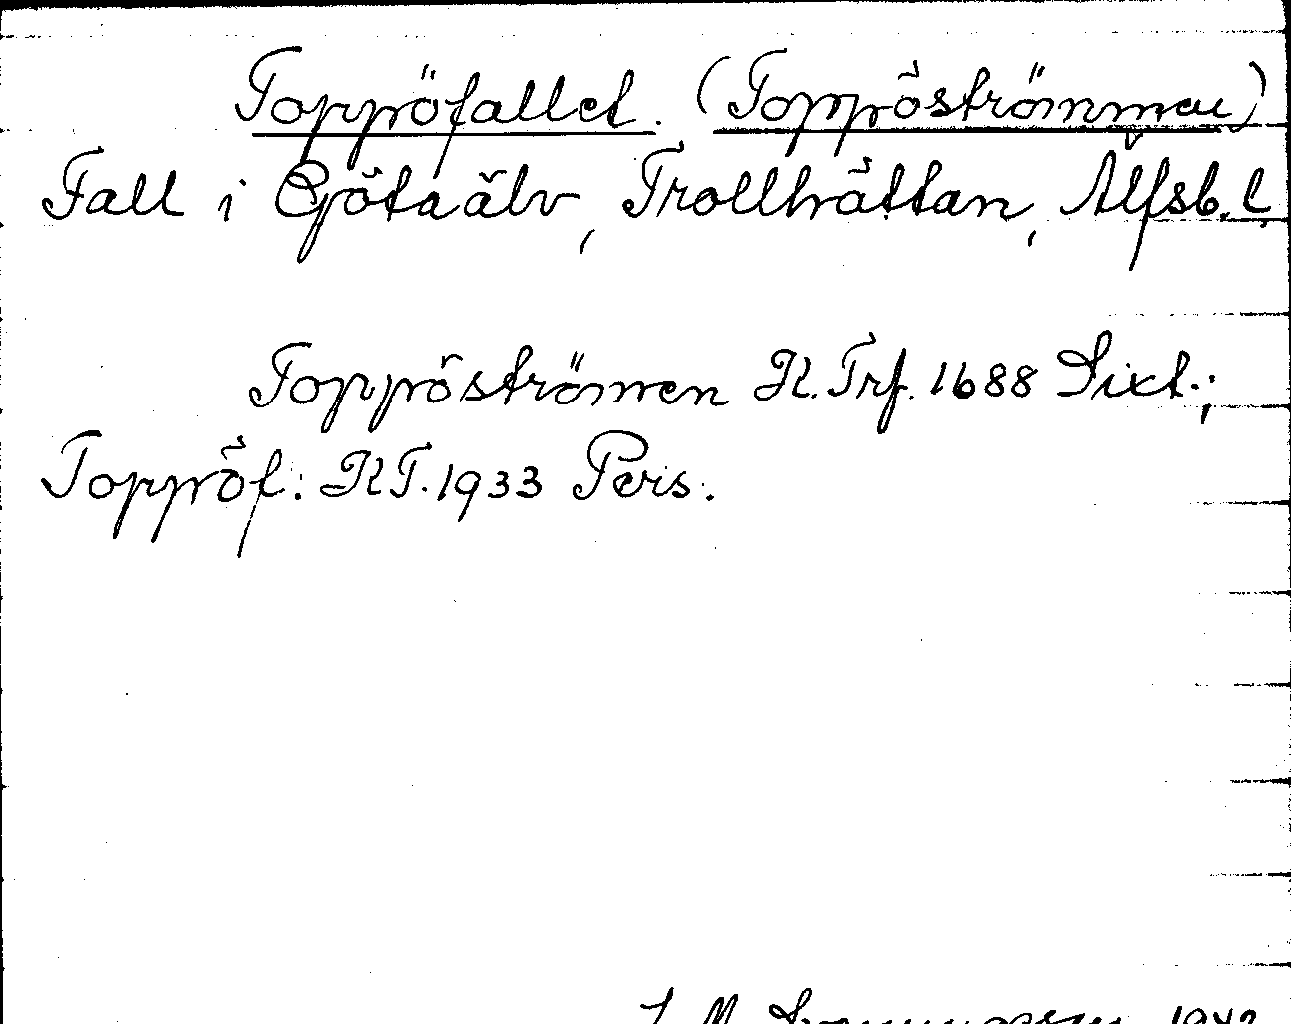 Toppöfallet. (Toppöströmmen)
Fall i Göta älv, Trollhättan, Älfsb. l.
Toppöströmen K. Trf. 1688 Sixt.;
Toppöf: KT. 1933 Pers.